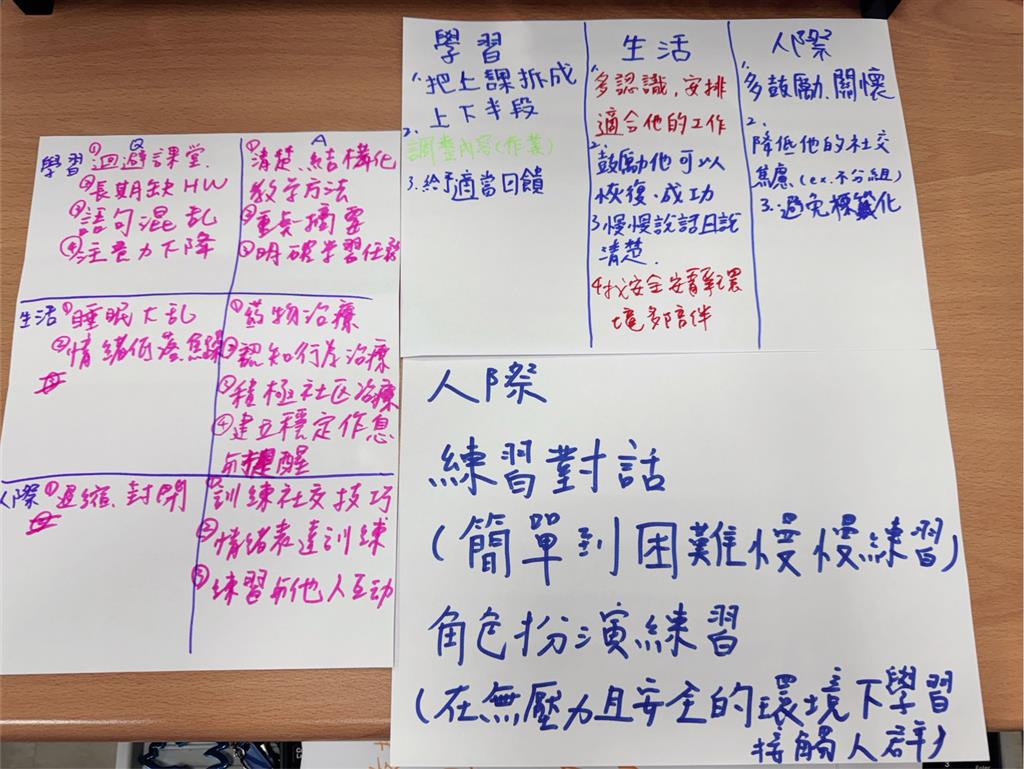 Q
A
學習
①迴避課堂.
②長期缺HW
③語句混乱
④注意力下降
①清楚、結構化
教学方法
②重点摘要
③明確学習任務
生活
①睡眠大乱
②情緒低落焦躁
①药物治療
②認知行为治療
③積極社区治療
④建立穩定作息
与提醒
人際
①退縮.封閉
①訓練社交技巧
②情緒表達訓練
③練習与他人互动
學習
1.把上課拆成
上下半段
2.
調整內容(作業)
3.給予適當回饋
生活
1.
多認識,安排
適合他的工作
2.
鼓勵他可以
恢復、成功
3.慢慢說話且說
清楚.
4.找安全安靜環
境多陪伴
人際
1.
多鼓勵、關懷
2.
降低他的社交
焦慮(ex.不分組)
3.避免標籤化
人際
練習對話
(簡單到困難慢慢練習)
角色扮演練習
(在無壓力且安全的環境下學習
接觸人群)